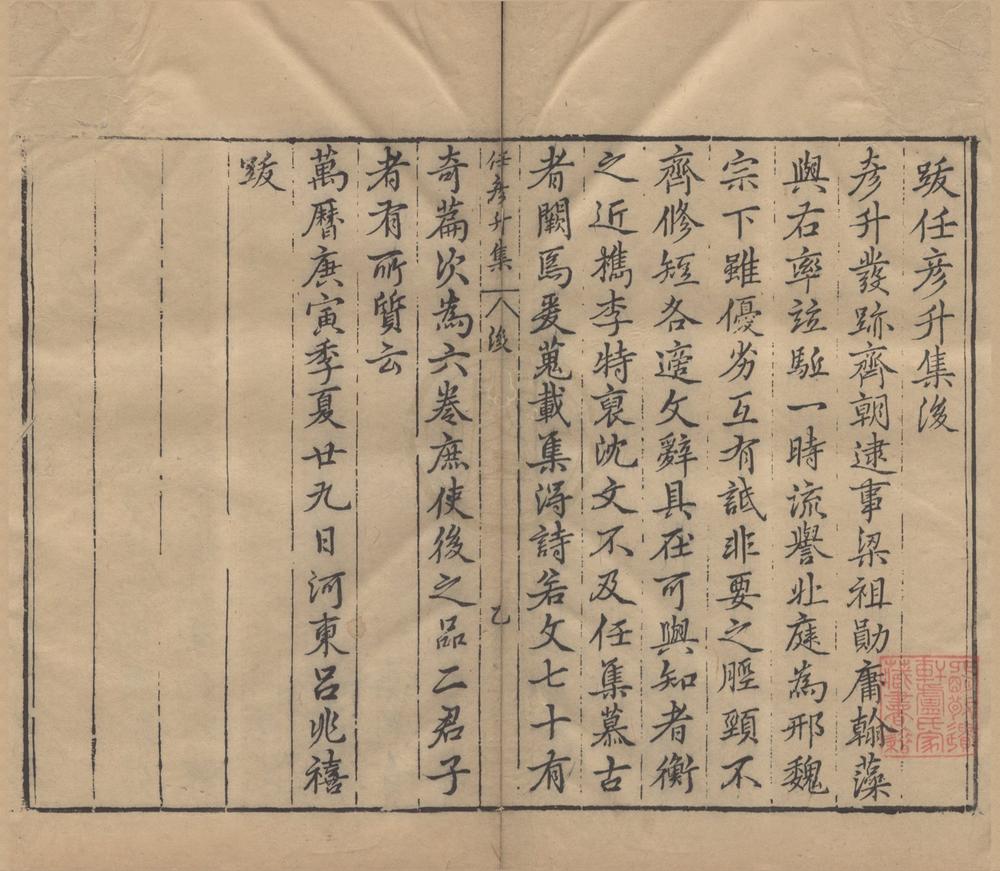 跋任彥升集後
彥升發跡齊朝逮事梁祖勛庸翰藻
與右率竝駈一時流譽北庭為邢魏
宗下雖優劣互有詆非要之脛頸不
齊修短各適文辭具在可與知者衡
之近檇李特裒沈文不及任集慕古
者闕焉爰蒐載集得詩若文七十有
任彥升集
後
乙
奇篇次為六卷庶使後之品二君子
者有所質云
萬曆庚寅季夏廿九日河東呂兆禧
跋